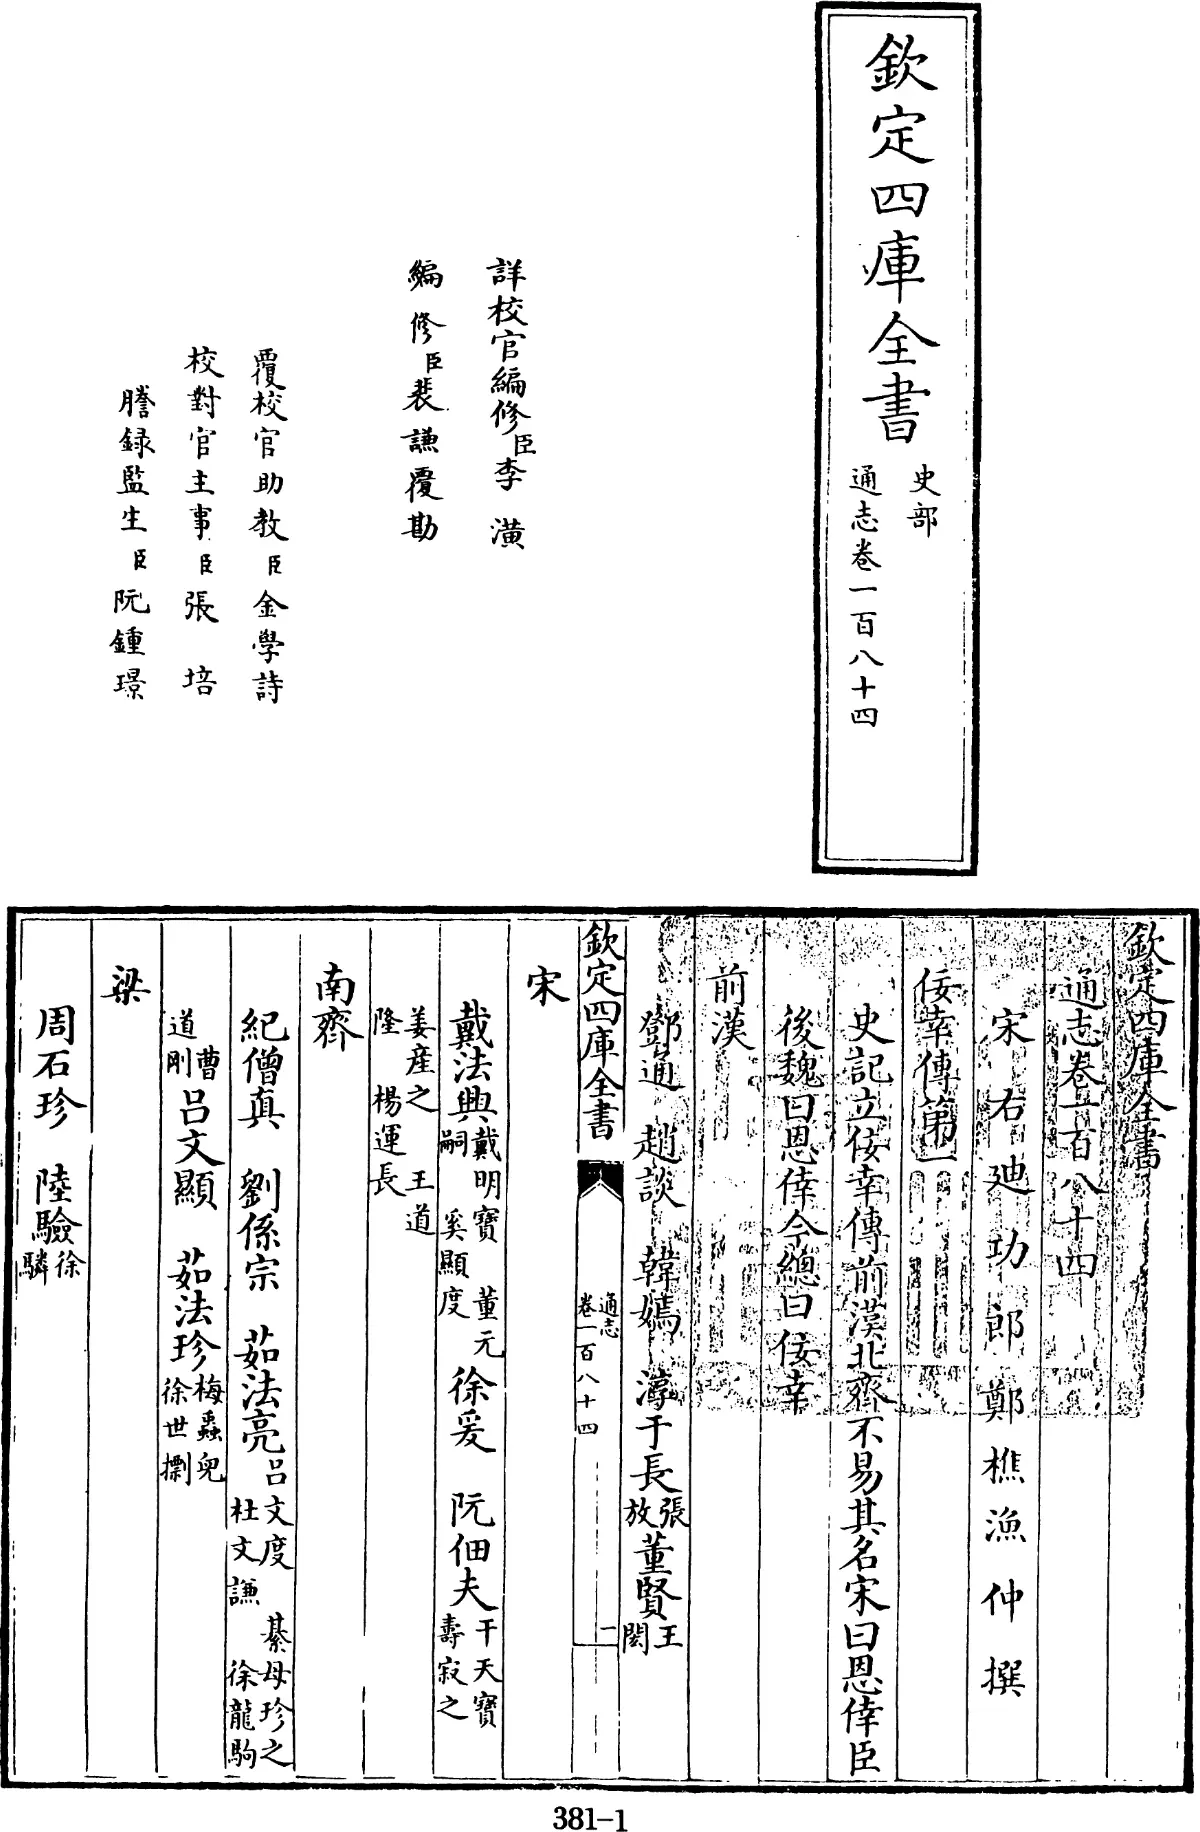 欽定四庫全書
史部
通志卷一百八十四
詳校官編修臣李潢
編修臣裴謙覆勘
覆校官助教臣金學詩
校對官主事臣張培
謄録監生臣阮鍾璟
欽定四庫全書
通志卷一百八十四
宋右迪功郎鄭樵漁仲撰
佞幸傳第一
史記立佞幸傳前漢北齊不易其名宋曰恩倖臣
後魏曰恩倖今總曰佞幸
前漢
鄧通 趙談 韓嫣 淳于長張放董賢王閎
欽定四庫全書 通志卷一百八十四 一
宋
戴法興戴明寶 董元嗣 奚顯度徐爰 阮佃夫于天寶 壽寂之
姜産之 王道隆 楊運長
南齊
紀僧真 劉係宗 茹法亮吕文度 綦母珍之 杜文謙 徐龍駒
曹道剛吕文顯 茹法珍梅蟲兒 徐世㯹
梁
周石珍 陸驗徐驎
381-1